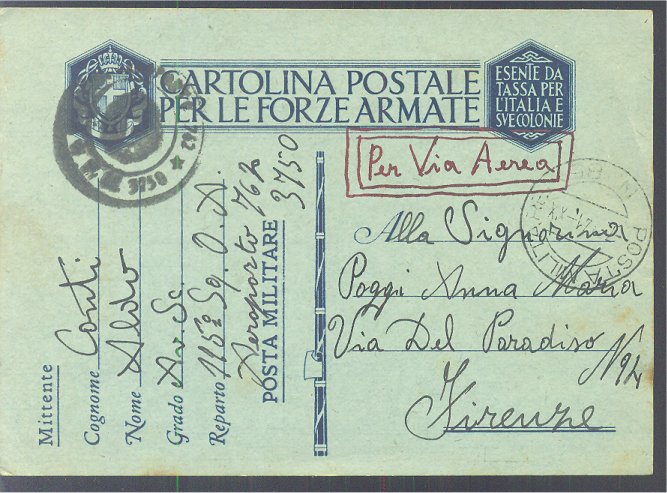 CARTOLINA POSTALE
PER LE FORZE ARMATE
ESENTE DA
TASSA PER
L'ITALIA E
SVE COLONIE
3750
Per Via Aerea
POSTA MILITARE
Alla Signorina
Poggi Anna Maria
Via Del Paradiso N94
Firenze
Mittente
Cognome Conti
Nome Aldo
Grado Av. Sc
Reparto 115ª Sq. O. A.
Aeroporto 762
POSTA MILITARE 3750